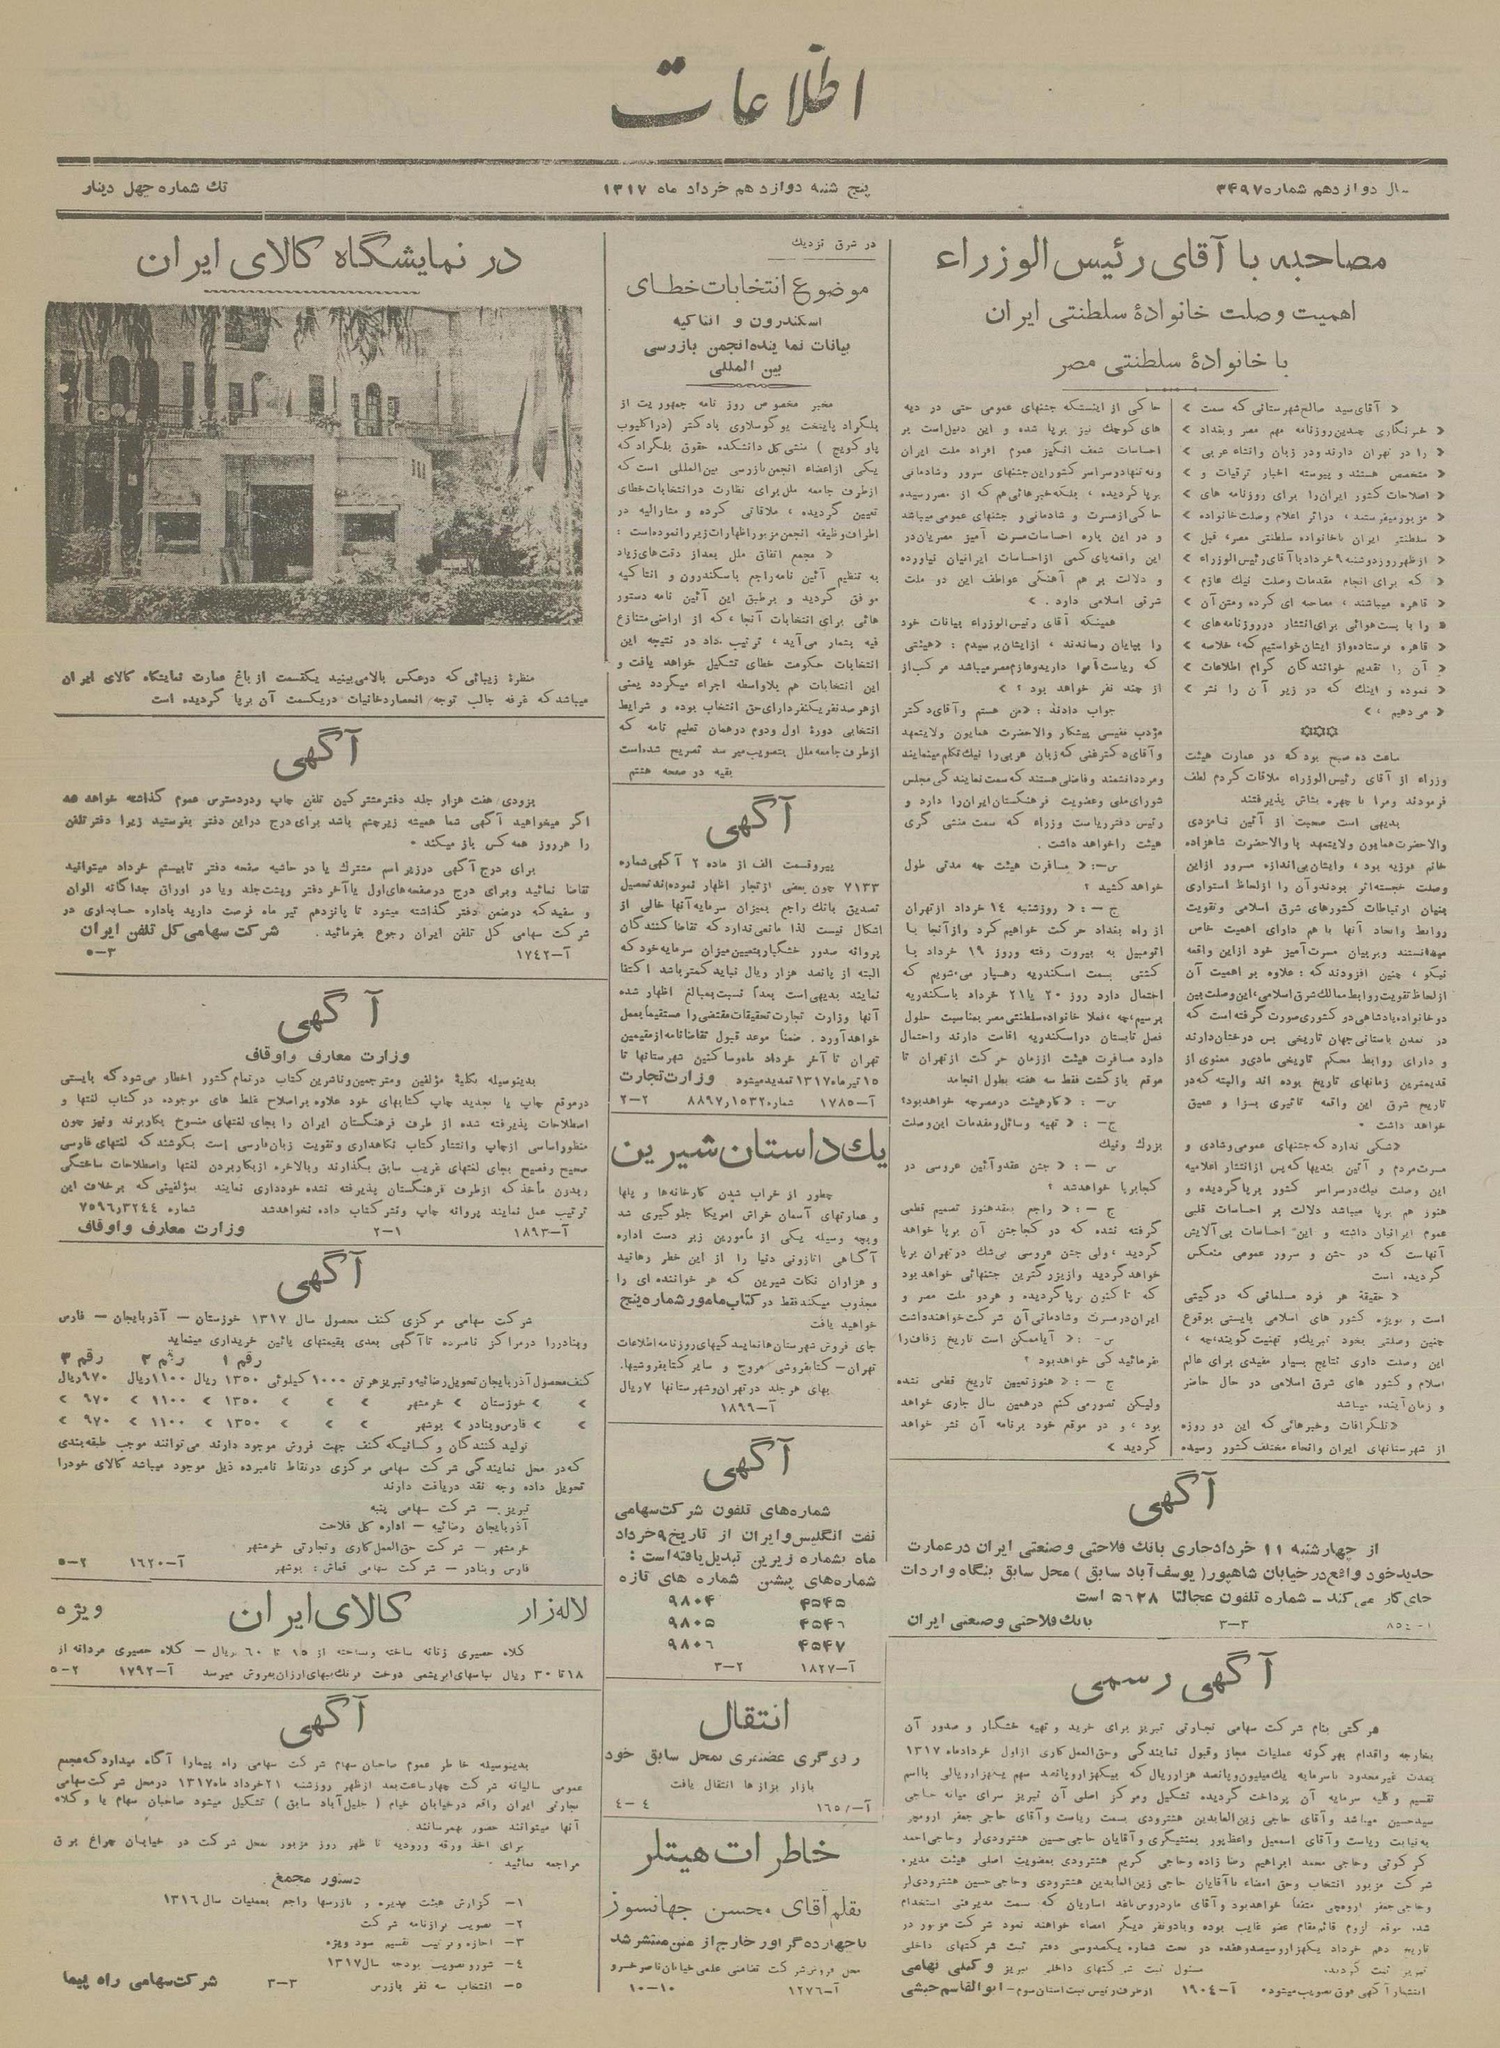 اطلاعات
سال دوازدهم شماره ۳۴۹۷
پنج شنبه دوازدهم خرداد ماه ۱۳۱۷
تك شماره چهل دینار
مصاحبه با آقای رئیس الوزراء
اهمیت وصلت خانوادهٔ سلطنتی ایران
با خانوادهٔ سلطنتی مصر
« آقای سید صالح شهرستانی که سمت »
« خبرنگاری چندین روزنامه مهم مصر و بغداد »
« را در تهران دارند و در زبان و انشاء عربی »
« متخصص هستند و پیوسته اخبار ترقیات و »
« اصلاحات کشور ایران را برای روزنامه های »
« مزبور میفرستند ، در اثر اعلام وصلت خانواده »
« سلطنتی ایران با خانواده سلطنتی مصر، قبل »
« از ظهر روز دوشنبه ۹ خرداد با آقای رئیس الوزراء »
« که برای انجام مقدمات وصلت نیك عازم »
« قاهره میباشند ، مصاحبه ای کرده و متن آن »
« را با پست هوائی برای انتشار در روزنامه های »
« قاهره فرستاده و از ایشان خواستیم که، خلاصه »
« آن را تقدیم خوانندگان گرام اطلاعات »
« نموده و اینك که در زیر آن را نشر »
« می دهیم ، »
ساعت ده صبح بود که در عمارت هیئت
وزراء از آقای رئیس الوزراء ملاقات کردم لطف
فرمودند و مرا با چهره بشاش پذیرفتند
بدیهی است صحبت از آئین نامزدی
والاحضرت همایون ولایتعهد با والاحضرت شاهزاده
خانم فوزیه بود ، و ایشان بی اندازه مسرور از این
وصلت خجسته اثر بودند و آن را از لحاظ استواری
بنیان ارتباطات کشورهای شرق اسلامی و تقویت
روابط و اتحاد آنها با هم دارای اهمیت خاص
میدانستند و بر بیان مسرت آمیز خود از این واقعه
نیکو ، چنین افزودند که : علاوه بر اهمیت آن
از لحاظ تقویت روابط ممالك شرق اسلامی، این وصلت بین
دو خانواده پادشاهی دو کشوری صورت گرفته است که
در تمدن باستانی جهان تاریخی بس درخشان دارند
و دارای روابط محکم تاریخی مادی و معنوی از
قدیمترین زمانهای تاریخ بوده اند والبته که در
تاریخ شرق این واقعه تاثیری بسزا و عمیق
خواهد داشت .
«شکی ندارد که جشنهای عمومی و شادی و
مسرت مردم و آئین بندیها که پس از انتشار اعلامیه
این وصلت نیك در سراسر کشور برپا گردیده و
هنوز هم برپا میباشد دلالت بر احساسات قلبی
عموم ایرانیان داشته و این احساسات بی آلایش
آنهاست که در جشن و سرور عمومی منعکس
گردیده است
« حقیقة هر فرد مسلمانی که در گیتی
است و بویژه کشور های اسلامی بایستی بوقوع
چنین وصلتی بخود تبریك و تهنیت گویند، چه ،
این وصلت دارای نتایج بسیار مفیدی برای عالم
اسلام و کشور های شرق اسلامی در حال حاضر
و زمان آینده میباشد
«تلگرافات و خبرهائی که این دو روزه
از شهرستانهای ایران و انحاء مختلف کشور رسیده
حاکی از اینستکه جشنهای عمومی حتی در دیه
های کوچك نیز برپا شده و این دلیل است بر
احساسات شعف انگیز عموم افراد ملت ایران
و نه تنها در سراسر کشور این جشنهای سرور و شادمانی
برپا گردیده ، بلکه خبرهائی هم که از مصر رسیده
حاکی از مسرت و شادمانی و جشنهای عمومی میباشد
و در این باره احساسات مسرت آمیز مصریان در
این واقعه پای کمی از احساسات ایرانیان نیاورده
و دلالت بر هم آهنگی عواطف این دو ملت
شرقی اسلامی دارد . »
همینکه آقای رئیس الوزراء بیانات خود
را بپایان رساندند ، از ایشان پرسیدم : «هیئتی
که ریاست آنرا دارید و عازم مصر میباشد مرکب از
از چند نفر خواهد بود ؟ »
جواب دادند : «من هستم و آقای دکتر
مؤدب نفیسی پیشکار والاحضرت همایون ولایتعهد
و آقای دکتر غنی که زبان عربی را نیك تکلم مینمایند
و مرد دانشمند و فاضلی هستند که سمت نمایندگی مجلس
شورای ملی و عضویت فرهنگستان ایران را دارد و
رئیس دفتر ریاست وزراء که سمت منشی گری
هیئت را خواهد داشت .
س-: « مسافرت هیئت چه مدتی طول
خواهد کشید ؟
ج -: « روز شنبه ۱۴ خرداد از تهران
از راه بغداد حرکت خواهیم کرد و از آنجا با
اتومبیل به بیروت رفته و روز ۱۹ خرداد با
کشتی بسمت اسکندریه رهسپار می شویم که
احتمال دارد روز ۲۰ یا ۲۱ خرداد باسکندریه
برسیم، چه ، فعلا خانواده سلطنتی مصر بمناسبت حلول
فصل تابستان در اسکندریه اقامت دارند و احتمال
دارد مسافرت هیئت از زمان حرکت از تهران تا
موقع بازگشت فقط سه هفته بطول انجامد
س-: «کار هیئت در مصر چه خواهد بود؟
ج-: « تهیه وسائل و مقدمات این وصلت
بزرك و نیك
س -: « جشن عقد و آئین عروسی در
کجا برپا خواهد شد ؟
ج -: « راجع بعقد هنوز تصمیم قطعی
گرفته نشده که در کجا جشن آن برپا خواهد
گردید ، ولی جشن عروسی بی شك در تهران برپا
خواهد گردید و از بزرگترین جشنهائی خواهد بود
که تا کنون برپا گردیده و هر دو ملت مصر و
ایران در مسرت و شادمانی آن شرکت خواهند داشت
س-: « آیا ممکن است تاریخ زفاف را
بفرمائید کی خواهد بود ؟
ج -: «هنوز تعیین تاریخ قطعی نشده
ولیکن تصور می کنم در همین سال جاری خواهد
بود ، و در موقع خود برنامه آن نشر خواهد
گردید »
آگهی
از چهارشنبه ۱۱ خرداد جاری بانك فلاحتی و صنعتی ایران در عمارت
جدید خود واقع در خیابان شاهپور ( یوسف آباد سابق ) محل سابق بنگاه واردات
جای کار می کند ــ شماره تلفون عجالتا ۵۶۲۸ است
۳-۳ بانك فلاحتی و صنعتی ایران
آگهی رسمی
شرکتی بنام شرکت سهامی تجارتی تبریز برای خرید و تهیه خشکبار و صدور آن
بخارجه و اقدام بهرگونه عملیات مجاز و قبول نمایندگی و حق العمل کاری از اول خرداد ماه ۱۳۱۷
بمدت غیر محدود با سرمایه یك میلیون و پانصد هزار ریال که بیکهزار و پانصد سهم یکهزار ریالی با اسم
تقسیم و کلیه سرمایه آن پرداخت گردیده تشکیل و مرکز اصلی آن تبریز سرای میانه حاجی
سید حسین میباشد و آقای حاجی زین العابدین هشترودی بسمت ریاست و آقای حاجی جعفر ارومچی
به نیابت ریاست و آقای اسمعیل واعظ پور بمنشیگری و آقایان حاجی حسین هشترودی لر و حاجی احمد
کرکوتی و حاجی محمد ابراهیم رضا زاده و حاجی کریم هشترودی بعضویت اصلی هیئت مدیره
شرکت مزبور انتخاب وحق امضاء با آقایان حاجی زین العابدین هشترودی و حاجی حسین هشترودی لر
و حاجی جعفر ارومچی متفقاً خواهد بود و آقای ماردروس ناغد اساریان که سمت مدیر فنی استخدام
شده موقع لزوم قائم مقام عضو غایب بوده و با دو نفر دیگر امضاء خواهند نمود شرکت مزبور در
تاریخ دهم خرداد یکهزار و سیصد و هفده در تحت شماره یکصد و سی دفتر ثبت شرکتهای داخلی
تبریز ثبت گردید. مسئول ثبت شرکتهای داخلی تبریز وکیلی تهامی
انتشار آگهی فوق تصویب میشود. آ-۱۹۰۴ از طرف رئیس ثبت استان سوم - ابوالقاسم حبشی
در شرق نزدیك
موضوع انتخابات خطای
اسکندرون و انتاکیه
بیانات نماینده انجمن بازرسی
بین المللی
مخبر مخصوص روز نامه جمهوریت از
بلگراد پایتخت یوگوسلاوی با دکتر (دراکلیوب
پاوکویچ ) منشی کل دانشکده حقوق بلگراد که
یکی از اعضاء انجمن بازرسی بین المللی است که
از طرف جامعه ملل برای نظارت در انتخابات خطای
تعیین گردیده ، ملاقاتی کرده و مشارالیه در
اطراف وظیفه انجمن مزبور اظهارات زیر را نموده است :
« مجمع اتفاق ملل بعد از دقت های زیاد
به تنظیم آئین نامه راجع باسکندرون و انتاکیه
موفق گردید و برطبق این آئین نامه دستور
هائی برای انتخابات آنجا ، که از اراضی متنازع
فیه بشمار می آید ، ترتیب داد در نتیجه این
انتخابات حکومت خطای تشکیل خواهد یافت و
این انتخابات هم بلاواسطه اجراء میگردد یعنی
از هر صد نفر یکنفر دارای حق انتخاب بوده و شرایط
انتخابی دورهٔ اول و دوم در همان تعلیم نامه که
از طرف جامعه ملل بتصویب میرسد تصریح شده است
بقیه در صفحه هشتم
آگهی
پیرو قسمت الف از ماده ۲ آگهی شماره
۷۱۳۳ چون بعضی از تجار اظهار نموده اند تحصیل
تصدیق بانك راجع بمیزان سرمایه آنها خالی از
اشکال نیست لذا مانعی ندارد که تقاضا کنندگان
پروانه صدور خشکبار بتعیین میزان سرمایه خود که
البته از پانصد هزار ریال نباید کمتر باشد اکتفا
نمایند بدیهی است بعداً نسبت بمبالغ اظهار شده
آنها وزارت تجارت تحقیقات مقتضی را مستقیماً بعمل
خواهد آورد . ضمناً موعد قبول تقاضانامه از مقیمین
تهران تا آخر خرداد ماه و ساکنین شهرستانها تا
۱۵ تیر ماه ۱۳۱۷ تمدید میشود وزارت تجارت
آ-۱۷۸۵ شماره ۱۵۳۲ر۸۸۹۷ ۲-۲
یك داستان شیرین
چطور از خراب شدن کارخانه ها و پلها
و عمارتهای آسمان خراش امریکا جلوگیری شد
و بچه وسیله یکی از مأمورین زبر دست اداره
آگاهی اتازونی دنیا را از این خطر رهانید
و هزاران نکات شیرین که هر خواننده ای را
مجذوب میکند فقط در کتاب مامور شماره پنج
خواهید یافت
جای فروش شهرستان ها نمایندگیهای روزنامه اطلاعات
تهران- کتابفروشی مروج و سایر کتابفروشیها.
بهای هر جلد در تهران و شهرستانها ۷ ریال
آ-۱۸۹۹
آگهی
شماره های تلفون شرکت سهامی
نفت انگلیس و ایران از تاریخ ۹ خرداد
ماه بشماره زیرین تبدیل یافته است :
شماره های پیشن شماره های تازه
۴۵۴۵ ۹۸۰۴
۴۵۴۶ ۹۸۰۵
۴۵۴۷ ۹۸۰۶
آ-۱۸۲۷ ۲-۳
انتقال
رفوگری عضنفری بمحل سابق خود
بازار بزازها انتقال یافت
۴-۴
خاطرات هیتلر
بقلم آقای محسن جهانسوز
با چهارده گراور خارج از متن منتشر شد
محل فروش شرکت تضامنی علمی خیابان ناصر خسرو
آ-۱۲۷۶ ۱۰-۱۰
در نمایشگاه کالای ایران
منظرهٔ زیبائی که در عکس بالا می بینید یکقسمت از باغ عمارت نمایشگاه کالای ایران
میباشد که غرفه جالب توجه انحصار دخانیات در یکسمت آن برپا گردیده است
آگهی
بزودی هفت هزار جلد دفتر مشترکین تلفن چاپ و در دسترس عموم گذاشته خواهد شد
اگر میخواهید آگهی شما همیشه زیر چشم باشد برای درج در این دفتر بفرستید زیرا دفتر تلفن
را هر روز همه کس باز میکند .
برای درج آگهی در زیر اسم مشترك یا در حاشیه صفحه دفتر تا بیستم خرداد میتوانید
تقاضا نمائید و برای درج در صفحه های اول یا آخر دفتر و پشت جلد و یا در اوراق جداگانه الوان
و سفید که در ضمن دفتر گذاشته میشود تا پانزدهم تیر ماه فرصت دارید باداره حسابداری در
شرکت سهامی کل تلفن ایران رجوع بفرمائید. شرکت سهامی کل تلفن ایران
آ-۱۷۴۲ ۳-۵
آگهی
وزارت معارف و اوقاف
بدینوسیله بکلیهٔ مؤلفین و مترجمین و ناشرین کتاب در تمام کشور اخطار می شود که بایستی
در موقع چاپ یا تجدید چاپ کتابهای خود علاوه بر اصلاح غلط های موجوده در کتاب لغتها و
اصطلاحات پذیرفته شده از طرف فرهنگستان ایران را بجای لغتهای منسوخ بکار برند و نیز چون
منظور اساسی از چاپ و انتشار کتاب نگاهداری و تقویت زبان فارسی است بکوشند که لغتهای فارسی
صحیح و فصیح بجای لغتهای غریب سابق بگذارند و بالاخره از بکار بردن لغتها و اصطلاحات ساختگی
و بدون مأخذ که از طرف فرهنگستان پذیرفته نشده خودداری نمایند بمؤلفینی که برخلاف این
ترتیب عمل نمایند پروانه چاپ و نشر کتاب داده نخواهد شد شماره ۳۲۴۴ر۷۵۹۶
آ-۱۸۹۳ ۱-۲ وزارت معارف و اوقاف
آگهی
شرکت سهامی مرکزی کنف محصول سال ۱۳۱۷ خوزستان - آذربایجان - فارس
و بنادر را در مراکز نامبرده تا آگهی بعدی بقیمتهای پائین خریداری مینماید
رقم ۱ رقم ۲ رقم ۳
کنف محصول آذربایجان تحویل رضائیه و تبریز هر تن ۱۰۰۰ کیلوئی ۱۳۵۰ ریال ۱۱۰۰ ریال ۹۷۰ ریال
» » خوزستان » خرمشهر » » » ۱۳۵۰ » ۱۱۰۰ » ۹۷۰ »
» » فارس و بنادر » بوشهر » » » ۱۳۵۰ » ۱۱۰۰ » ۹۷۰ »
تولید کنندگان و کسانیکه کنف جهت فروش موجود دارند می توانند موجب طبقه بندی
که در محل نمایندگی شرکت سهامی مرکزی در نقاط نامبرده ذیل موجود میباشد کالای خود را
تحویل داده وجه نقد دریافت دارند
تبریز - شرکت سهامی پنبه
آذربایجان رضائیه - اداره کل فلاحت
خرمشهر - شرکت حق العمل کاری و تجارتی خرمشهر
فارس و بنادر - شرکت سهامی قماش : بوشهر آ-۱۶۲۰ ۲-۵
لاله زار کالای ایران ویژه
کلاه حصیری زنانه ساخته و ساخته از ۱۵ تا ۶۰ ریال - کلاه حصیری مردانه از
۱۸ تا ۳۰ ریال لباسهای ابریشمی دوخت فرنك ببهای ارزان بفروش میرسد آ-۱۷۹۲ ۲-۵
آگهی
بدینوسیله خاطر عموم صاحبان سهام شرکت سهامی راه پیما را آگاه میدارد که مجمع
عمومی سالیانه شرکت چهار ساعت بعد از ظهر روز شنبه ۲۱ خرداد ماه ۱۳۱۷ در محل شرکت سهامی
تجارتی ایران واقع در خیابان خیام ( جلیل آباد سابق ) تشکیل میشود صاحبان سهام یا وکلاء
آنها میتوانند حضور بهمرسانند.
برای اخذ ورقه ورودیه تا ظهر روز مزبور بمحل شرکت در خیابان چراغ برق
مراجعه نمائید .
دستور مجمع
۱- گزارش هیئت مدیره و بازرسها راجع بعملیات سال ۱۳۱۶
۲- تصویب ترازنامه شرکت
۳- اجازه و ترتیب تقسیم سود ویژه
۴- شور و تصویب بودجه سال ۱۳۱۷
۵- انتخاب سه نفر بازرس ۳-۳ شرکت سهامی راه پیما